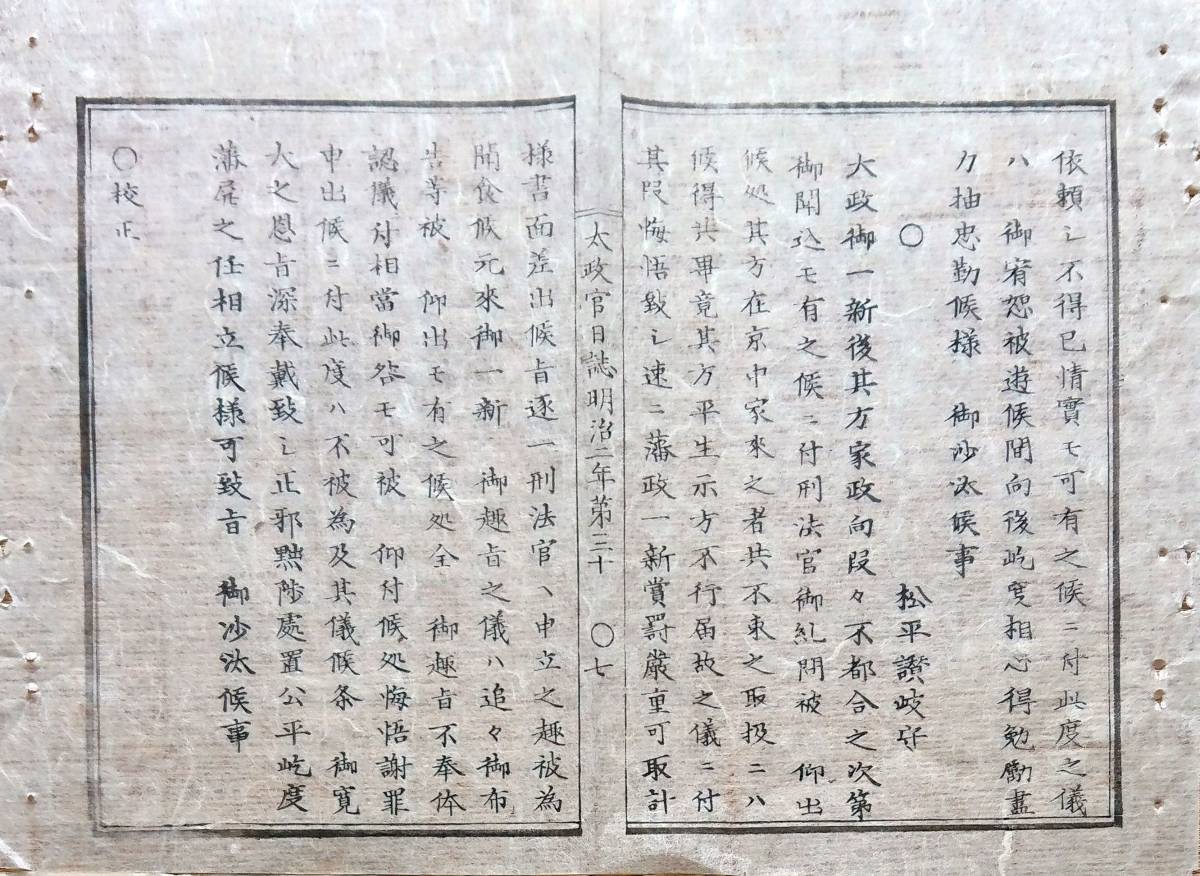 依頼シ不得已情實モ可有之候ニ付此度之儀
ハ　御宥恕被遊候間向後屹度相心得勉勵盡
力抽忠勤候様　御沙汰候事
〇　松平讃岐守
大政御一新後其方家政向段々不都合之次第
御聞込モ有之候ニ付刑法官御糺問被　仰出
候処其方在京中家來之者共不束之取扱ニハ
候得共畢竟其方平生示方不行届故之儀ニ付
其段悔悟致シ速ニ藩政一新賞罸嚴重可取計
太政官日誌明治二年第三十　〇七
様書面差出候旨逐一刑法官ヽ申立之趣被為
聞食候元來御一新　御趣旨之儀ハ追々御布
告等被　仰出モ有之候処全　御趣旨不奉体
認儀付相當御咎モ可被　仰付候処悔悟謝罪
申出候ニ付此度ハ不被為及其儀候条　御寛
大之恩旨深奉戴致シ正邪黜陟處置公平屹度
藩屏之任相立候様可致旨　御沙汰候事
〇校正